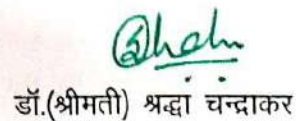 डॉ.(श्रीमती) श्रद्धां चन्द्राकर